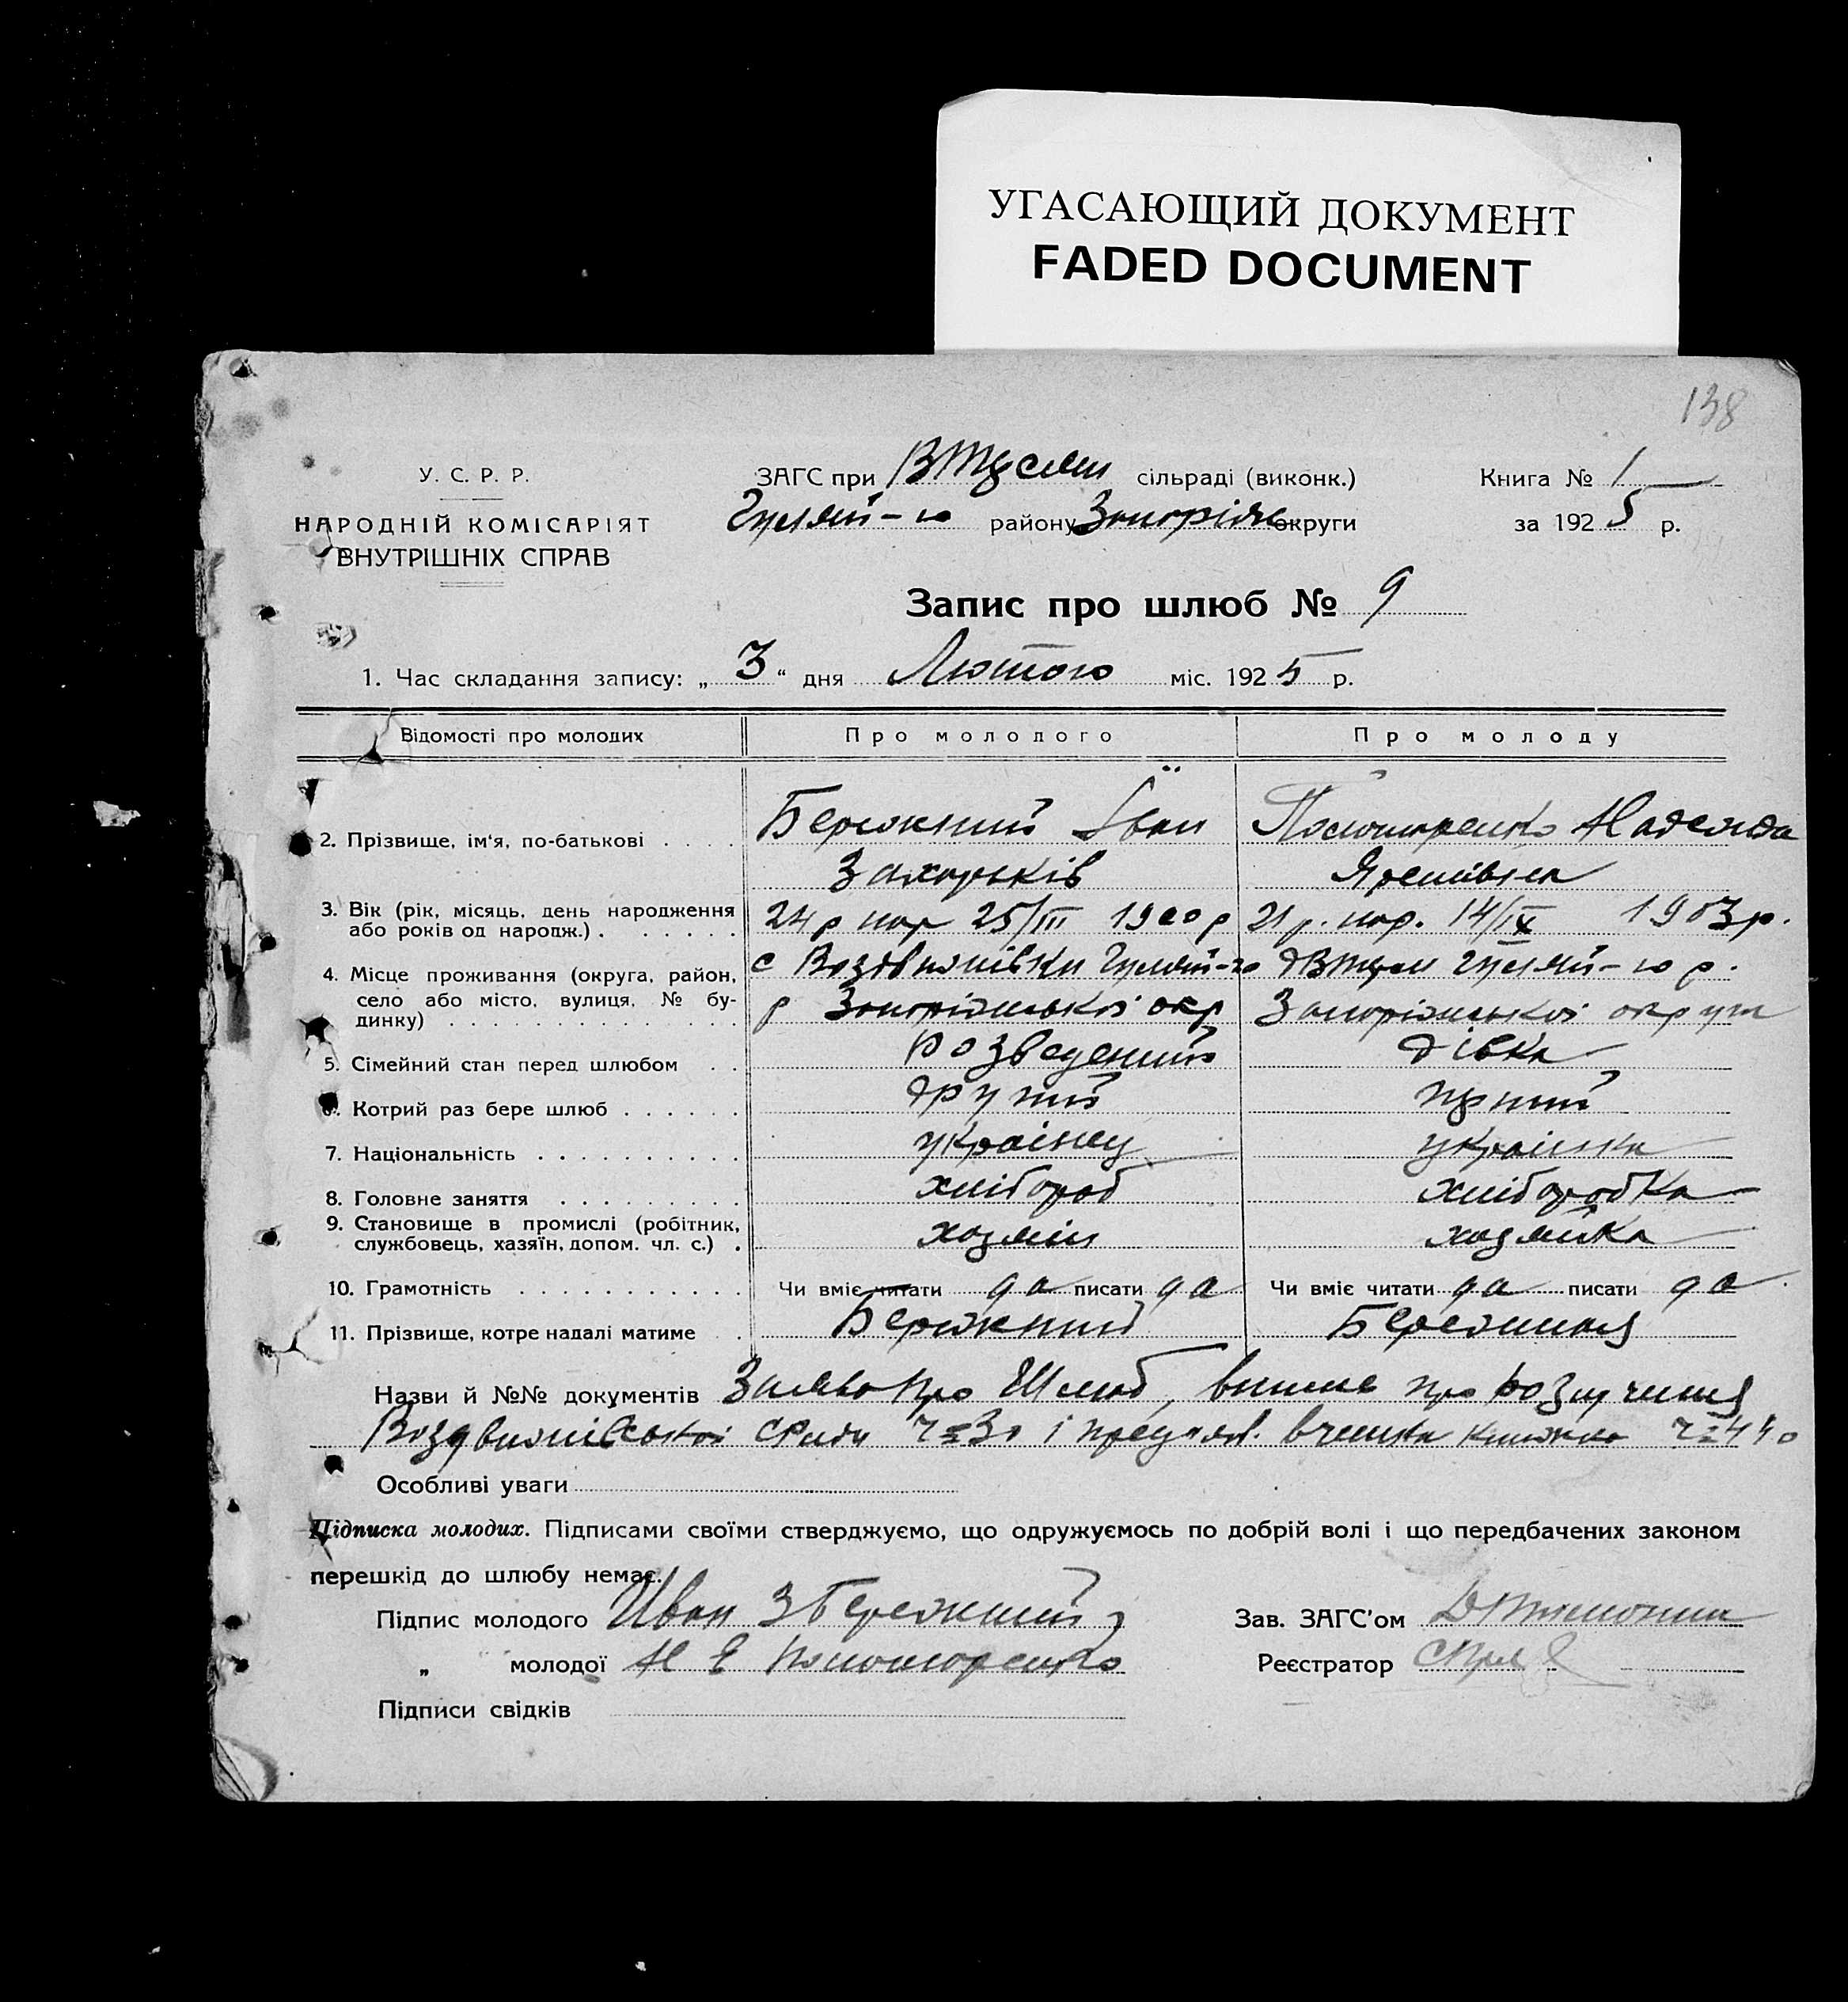 УГАСАЮЩИЙ ДОКУМЕНТ
FADED DOCUMENT
138
У. С. Р. Р.
НАРОДНІЙ КОМІСАРІЯТ
ВНУТРІШНІХ СПРАВ
ЗАГС при сільраді (виконк.)
Гуляй-го району Запоріж округи
Книга № 1
за 1925 р.
Запис про шлюб № 9
1. Час складання запису: „ 3 “ дня Лютого міс. 1925 р.
Відомості про молодих
Про молодого
Про молоду
2. Прізвище, ім'я, по-батькові . . . .
Бережний Іван
Захарьків
Пономаренко Надежда
3. Вік (рік, місяць, день народження
або років од народж.) . . . . . .
24 р нар 25/III 1900 р
21 р. нар. 14/IX 1903 р.
4. Місце проживання (округа, район,
село або місто, вулиця, № бу-
динку) . . . . . . . . . . . . . .
с Воздвижівки Гуляй-го
р Запоріжської окр
Гуляй-го р.
Запоріжської округи
5. Сімейний стан перед шлюбом . .
розведений
дівка
6. Котрий раз бере шлюб . . . . . .
другий
перший
7. Національність . . . . . . . . . .
українец
українка
8. Головне заняття . . . . . . . . .
хлібороб
хліборобка
9. Становище в промислі (робітник,
службовець, хазяїн, допом. чл. с.) .
хозяін
хозяйка
10. Грамотність . . . . . . . . . . .
Чи вміє читати да писати да
Чи вміє читати да писати да
11. Прізвище, котре надалі матиме . .
Бережний
Бережная
Назви й №№ документів Заява про Шлюб, про розлучення
Воздвижівської с Ради і книжка
Особливі уваги
Підписка молодих. Підписами своїми стверджуємо, що одружуємось по добрій волі і що передбачених законом
перешкід до шлюбу немає.
Підпис молодого Иван З Бережний
„ молодої Н Е Пономаренко
Підписи свідків
Зав. ЗАГС'ом
Реєстратор